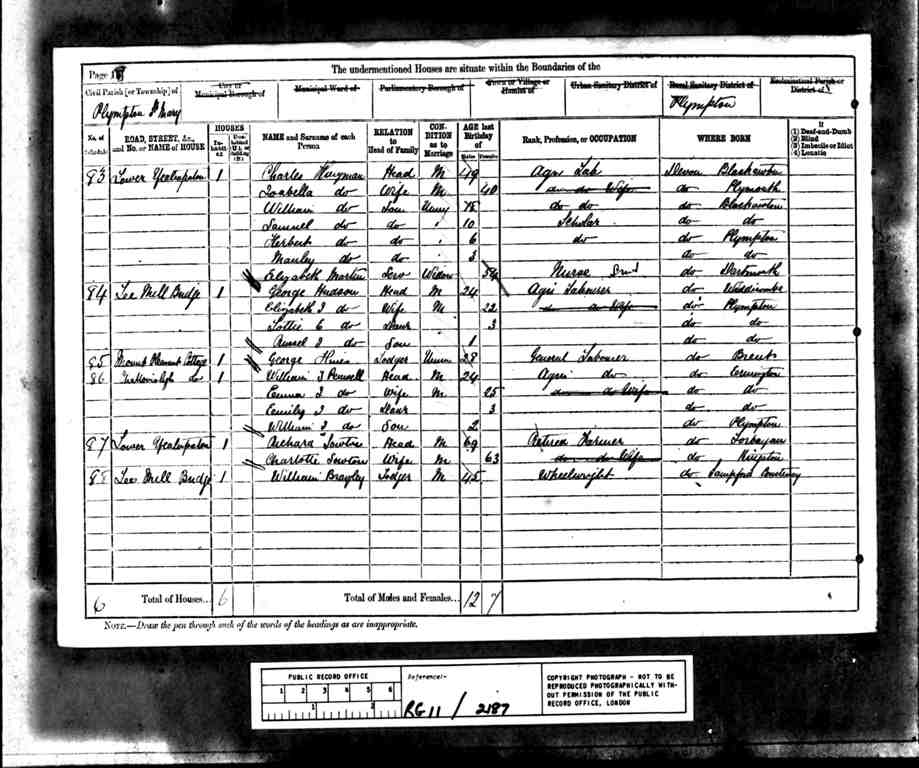 The undermentioned Houses are situate within the Boundaries of the
Page
Civil Parish [or Township] of
Plympton St Mary
City or Municipal Borough of
Municipal Ward of
Parliamentary Borough of
Town or Village or Hamlet of
Urban Sanitary District of
Rural Sanitary District of
Plympton
Ecclesiastical Parish or District of
No. of Schedule
ROAD, STREET, &c., and No. or NAME of HOUSE
HOUSES
In-habit-ed
NAME and Surname of each Person
RELATION to Head of Family
CON-DITION as to Marriage
AGE last Birthday of
Males Females
Rank, Profession, or OCCUPATION
WHERE BORN
If
(1) Deaf-and-Dumb
(2) Blind
(3) Imbecile or Idiot
(4) Lunatic
83 Lower 1 Charles Head M 49 Agri Lab Devon Blackawton
Isabella do Wife M 40 do do Wife do Plymouth
William do Son do do do Blackawton
Samuel do do 10 Scholar do do
Herbert do do 6 do do Plympton
Manley do do 3 do do
Elizabeth Martin Widow 54 Nurse do Dartmouth
84 Lee Mill Bridge 1 George Hudson Head M 24 Agri Labourer do Widdicombe
Elizabeth J do Wife M 22 do do Wife do Plympton
Lottie E do Daur 3 do do
J do Son 1 do do
85 Mount Pleasant Cottage 1 George Lodger Unm 28 General Labourer do Brent
86 do 1 William J Head M 24 Agri do do Ermington
Emma J do Wife M 25 do do Wife do do
Emily J do Daur 3 do do
William J do Son 2 do Plympton
87 Lower 1 Richard Head M 69 Retired Farmer do
Charlotte Wife M 63 do do Wife do Kingston
88 Lee Mill Bridge 1 William Brayley Lodger M 45 Wheelwright do Sampford Courtenay
6 Total of Houses... 6 Total of Males and Females... 12 7
NOTE.—Draw the pen through such of the words of the headings as are inappropriate.
PUBLIC RECORD OFFICE
1 2 3 4 5 6
1 2
Reference:-
RG 11 / 2187
COPYRIGHT PHOTOGRAPH - NOT TO BE
REPRODUCED PHOTOGRAPHICALLY WITH-
OUT PERMISSION OF THE PUBLIC
RECORD OFFICE, LONDON